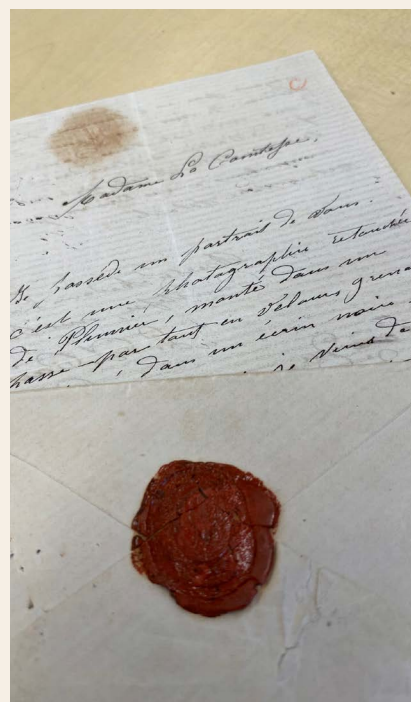 Madame La Comtesse,
Je possède un portrait de vous.
c'est une photographie retouchée
de Plumier, monté dans un
passe par tout en velours grenat
dans un écrin noir